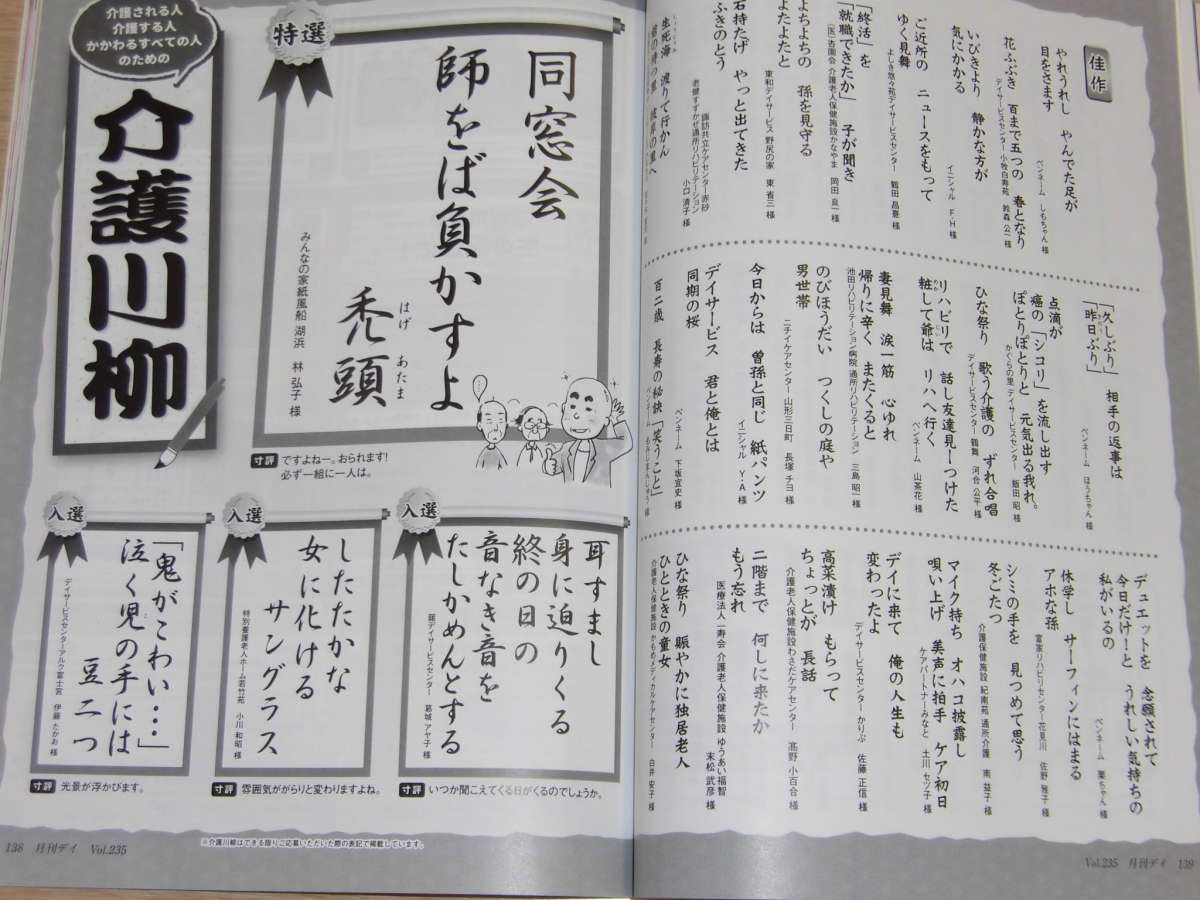 介護される人
介護する人
かかわるすべての人
のための
介護川柳
特選
同窓会
師をば負かすよ
禿頭
はげ あたま
みんなの家紙風船 湖浜 林 弘子 様
寸評 ですよねー。おられます!
必ず一組に一人は。
入選
耳すまし
身に迫りくる
終の日の
音なき音を
たしかめんとする
葛城 アヤ子 様
寸評 いつか聞こえてくる日がくるのでしょうか。
入選
したたかな
女に化ける
サングラス
特別養護老人ホーム若竹苑 小川 和昭 様
寸評 雰囲気ががらりと変わりますよね。
入選
「鬼がこわい・・・」
泣く児の手には
豆二つ
デイサービスセンターアルク富士宮 伊藤 たかお 様
寸評 光景が浮かびます。
※介護川柳はできる限りご応募いただいた際の表記で掲載しています。
138 月刊デイ Vol.235
佳作
やれうれし やんでた足が
目をさます
ペンネーム しもちゃん 様
花ふぶき 百まで五つの 春となり
デイサービスセンター小牧白寿苑 鈴森 公一 様
いびきより 静かな方が
気にかかる
イニシャル F・H 様
ご近所の ニュースをもって
ゆく見舞
よしき悠々苑デイサービスセンター 鶴田 昌憲 様
「終活」を
「就職できたか」 子が聞き
(医)杏園会 介護老人保健施設かなやま 岡田 良一 様
よちよちの 孫を見守る
よたよたと
東和デイサービス 野尻の家 東 省三 様
石持たげ やっと出てきた
ふきのとう
諏訪共立ケアセンター赤砂
老健すずかぜ通所リハビリテーション
小口 清子 様
生死海 渡りて行かん
「久しぶり」 相手の返事は
「昨日ぶり」
ペンネーム ほうちゃん 様
点滴が
癌の「シコリ」を流し出す
ぽとりぽとりと 元気出る我れ。
かぐらの里 デイサービスセンター 飯田 昭 様
ひな祭り 歌う介護の ずれ合唱
デイサービスセンター 鶴舞 河合 公平 様
リハビリで 話し友達見ーつけた
粧して爺は リハへ行く
ペンネーム 山茶花 様
妻見舞 涙一筋 心ゆれ
帰りに辛く またくると
池田リハビリテーション病院 通所リハビリテーション 三島 昭一 様
のびほうだい つくしの庭や
男世帯
ニチイケアセンター山形三日町 長塚 チヨ 様
今日からは 曽孫と同じ 紙パンツ
イニシャル Y・A 様
デイサービス 君と俺とは
同期の桜
ペンネーム 下坂宣史 様
百二歳 長寿の秘訣「笑うこと」
デュエットを 念願されて
今日だけ!と うれしい気持ちの
私がいるの
ペンネーム 栗ちゃん 様
休学し サーフィンにはまる
アホな孫
富家リハビリセンター花見川 佐野 雅子 様
シミの手を 見つめて思う
冬ごたつ
介護保健施設 紀南苑 通所介護 南 益子 様
マイク持ち オハコ披露し
唄い上げ 美声に拍手 ケア初日
ケアパートナーみなと 土川 セツ子 様
デイに来て 俺の人生も
変わったよ
デイサービスセンター かりぷ 佐藤 正信 様
高菜漬け もらって
ちょっとが 長話
介護老人保健施設わさだケアセンター 髙野 小百合 様
二階まで 何しに来たか
もう忘れ
医療法人一寿会 介護老人保健施設 ゆうあい福智
末松 武彦 様
ひな祭り 賑やかに独居老人
ひとときの童女
介護老人保健施設 かもめメディカルケアセンター 白井 安子 様
Vol.235 月刊デイ 139